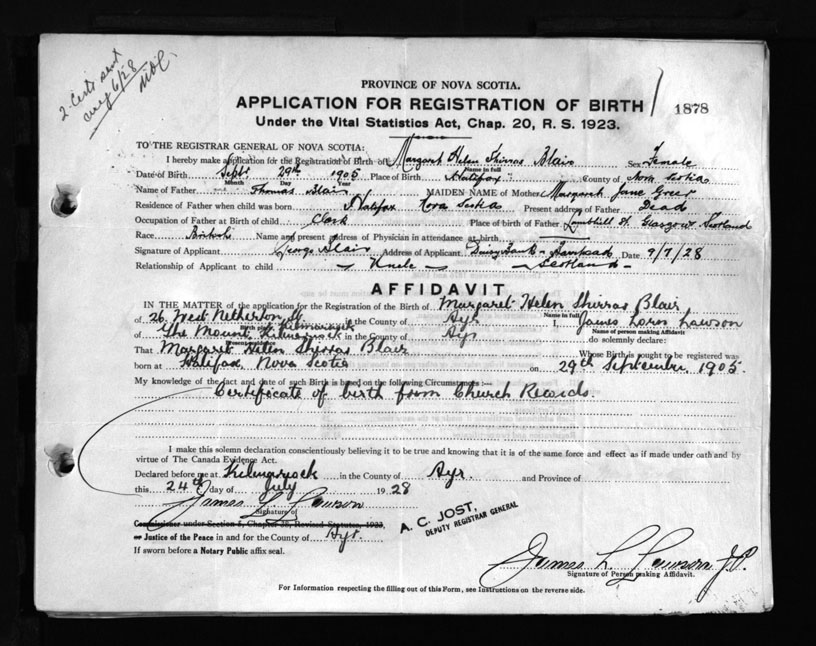 2 Certs sent
Aug 6/28
PROVINCE OF NOVA SCOTIA.
APPLICATION FOR REGISTRATION OF BIRTH
1878
Under the Vital Statistics Act, Chap. 20, R. S. 1923.
TO THE REGISTRAR GENERAL OF NOVA SCOTIA:
I hereby make application for the Registration of Birth of Margaret Helen Shirras Blair Sex Female
Name in full
Date of Birth Sept. 29th 1905 Place of Birth Halifax County of Nova Scotia
Month Day Year
Name of Father Thomas Blair MAIDEN NAME of Mother Margaret Jane Greer
Residence of Father when child was born Halifax Nova Scotia Present address of Father Dead
Occupation of Father at Birth of child Clerk Place of birth of Father Lambhill St. Glasgow Scotland
Race British Name and present address of Physician in attendance at birth
Signature of Applicant George Blair Address of Applicant Date 9/7/28
Relationship of Applicant to child Uncle Scotland
AFFIDAVIT
IN THE MATTER of the application for the Registration of the Birth of Margaret Helen Shirras Blair
Name in full
of 26 West Netherton St Kilmarnock in the County of Ayr I, James Lawson
Birth place Name of person making Affidavit
of The Mount Kilmarnock in the County of Ayr do solemnly declare:
Present residence
That Margaret Helen Shirras Blair Whose Birth is sought to be registered was
born at Halifax, Nova Scotia on 29th September, 1905.
My knowledge of the fact and date of such Birth is based on the following Circumstances:—
Certificate of birth from Church Records.
I make this solemn declaration conscientiously believing it to be true and knowing that it is of the same force and effect as if made under oath and by
virtue of The Canada Evidence Act.
Declared before me at Kilmarnock in the County of Ayr and Province of
this 24th day of July 1928
James L. Lawson
Signature of
A. C. JOST,
DEPUTY REGISTRAR GENERAL
Commissioner under Section 5, Chapter 38, Revised Statutes, 1923,
or Justice of the Peace in and for the County of Ayr.
If sworn before a Notary Public affix seal.
James L. Lawson J.P.
Signature of Person making Affidavit.
For Information respecting the filling out of this Form, see Instructions on the reverse side.